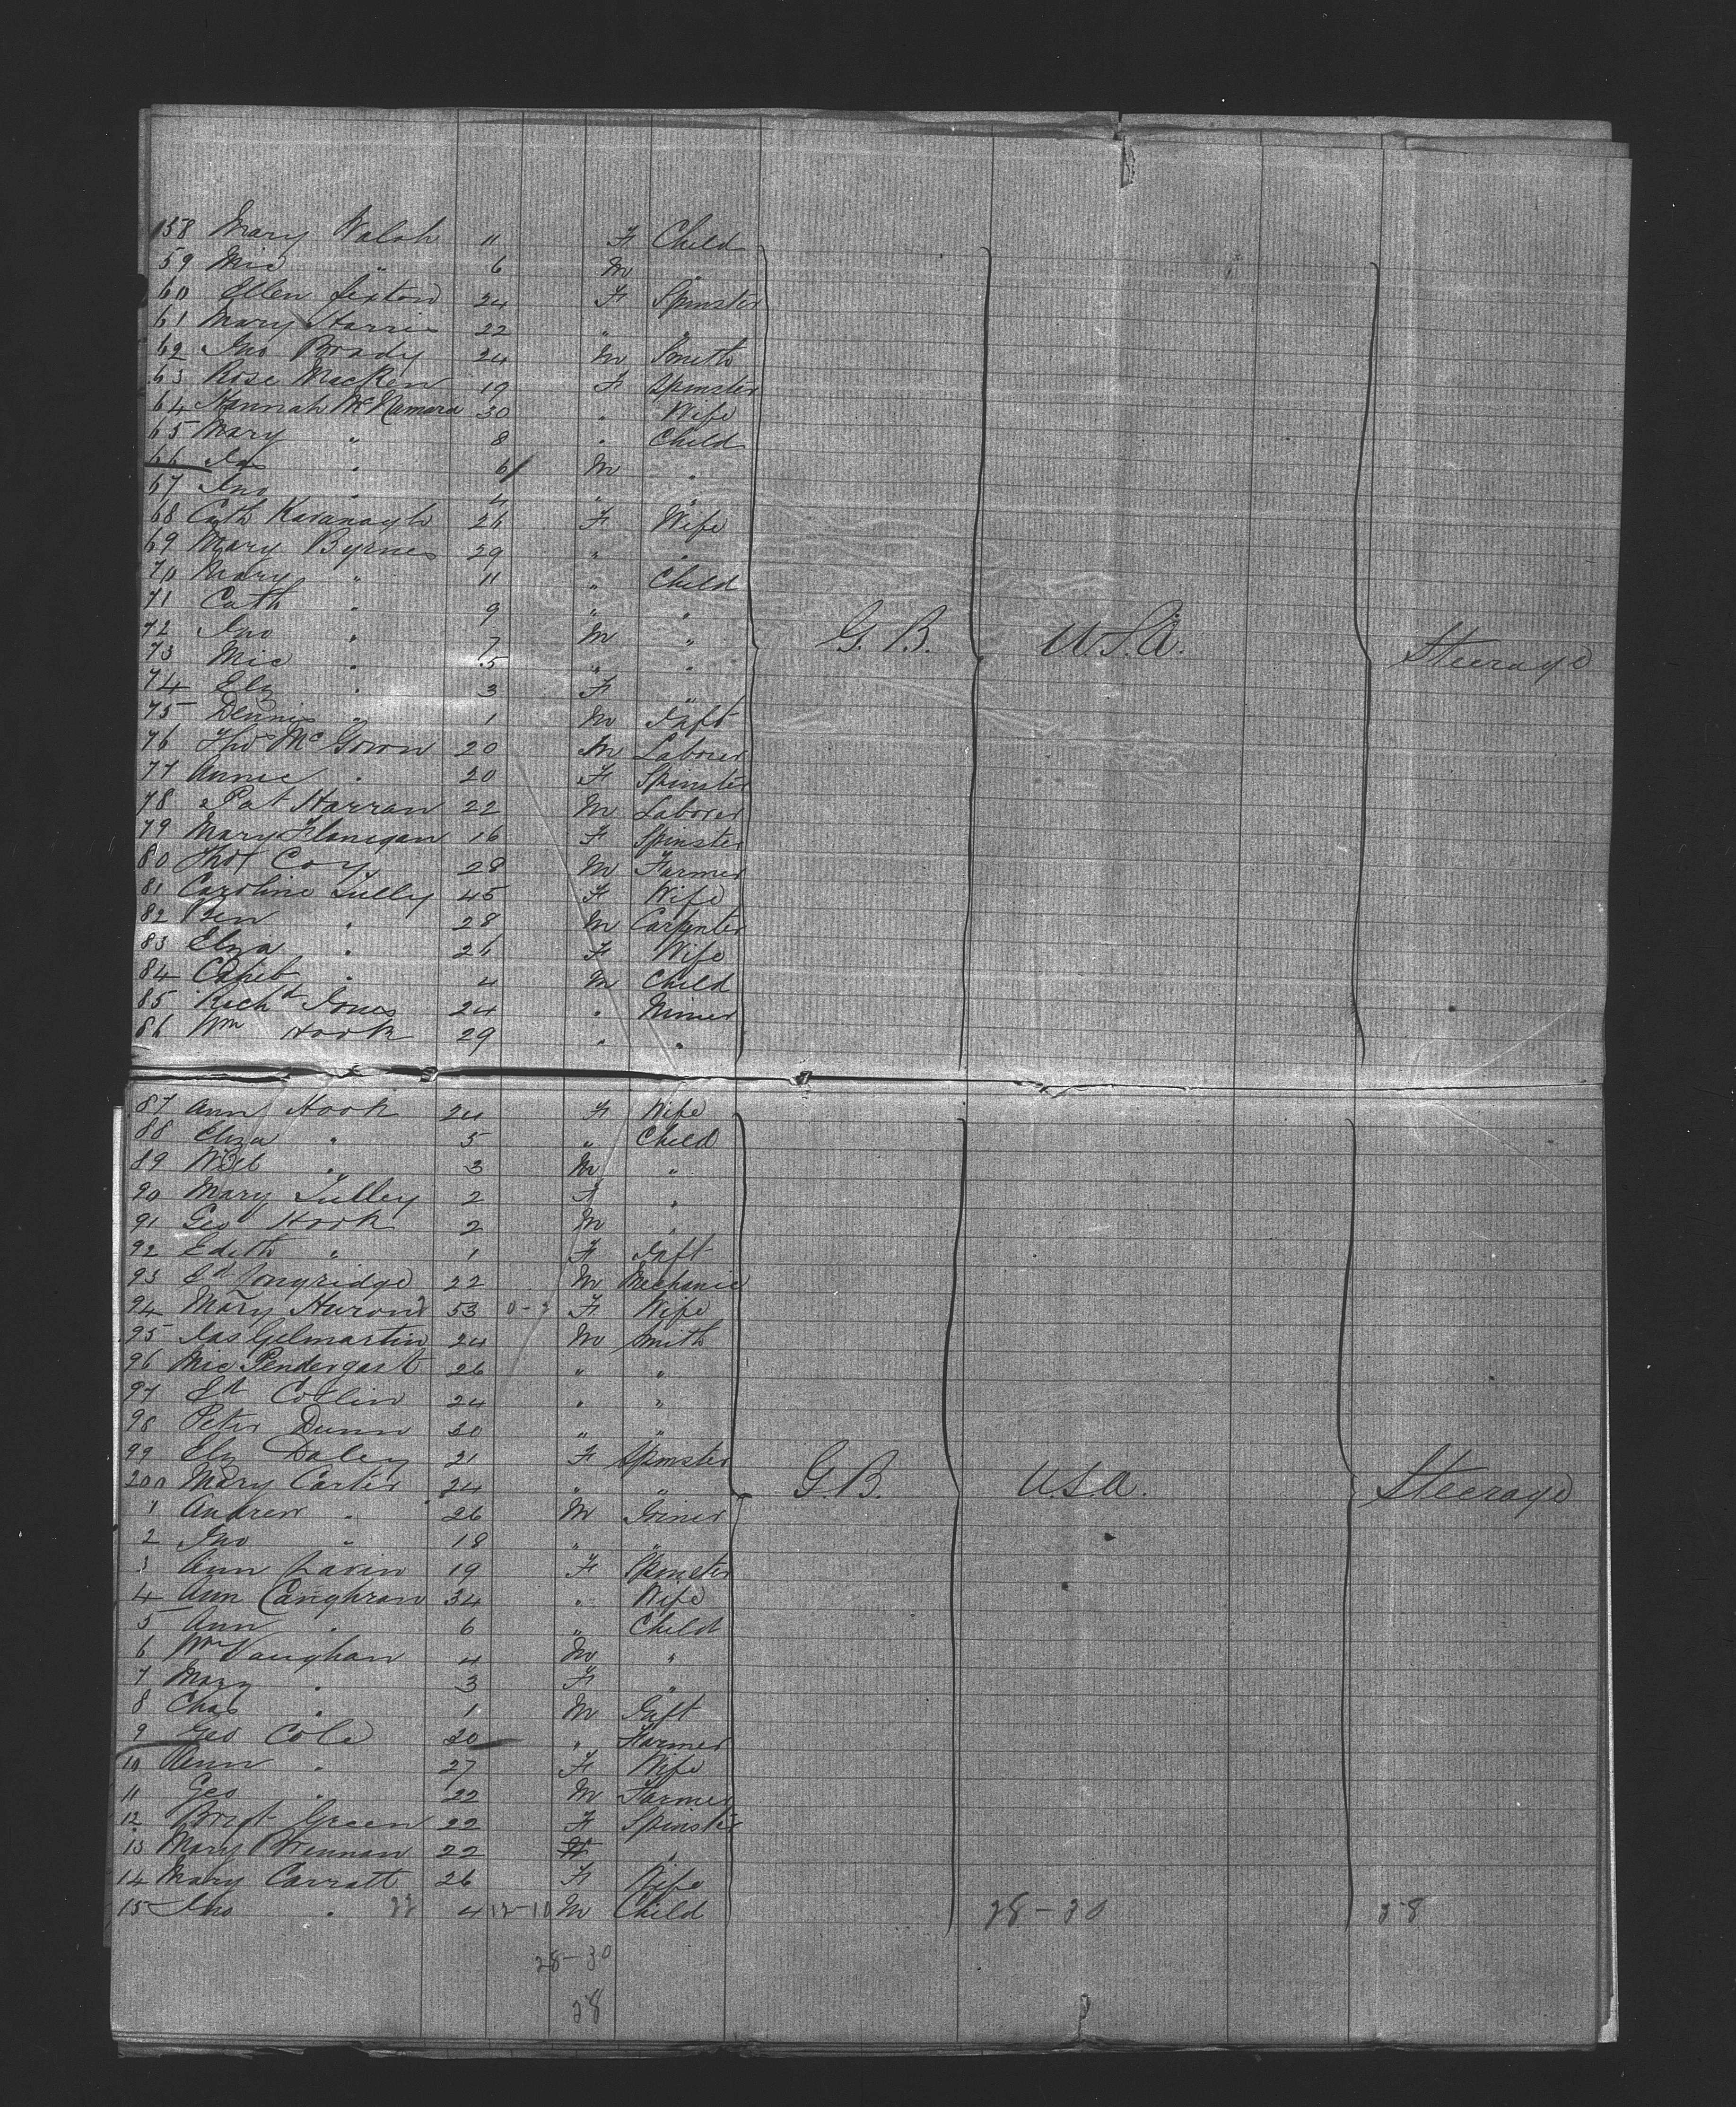 158 Mary Walsh 11 F Child
59 Mic " 6 M "
60 Ellen Sexton 24 F Spinster
61 Mary Harris 22 " "
62 Jno Brady 24 M Smith
63 Rose Macken 19 F Spinster
64 Hannah McNamara 30 " Wife
65 Mary " 8 " Child
66 Jas " 6 M "
67 Jno " 4 " "
68 Cath Kavanagh 26 F Wife
69 Mary Byrnes 29 " "
70 Mary " 11 " Child
71 Cath " 9 " "
72 Jno " 7 M "
73 Mic " 5 " "
G. B. U.S.A. Steerage
74 Elz " 3 F "
75 Dennis " 1 M Inft
76 Thos McGown 20 M Laborer
77 Annie " 20 F Spinster
78 Pat Harran 22 M Laborer
79 Mary Flanegan 16 F Spinster
80 Thos Coy 28 M Farmer
81 Caroline Tulley 45 F Wife
82 Ben " 28 M Carpenter
83 Elza " 26 F Wife
84 " 4 M Child
85 Richd Jones 24 " Miner
86 Wm Hook 29 " "
87 Ann Hook 24 F Wife
88 Eliza " 5 " Child
89 " 3 M "
90 Mary Tulley 2 F "
91 Geo Hook 2 M "
92 Edith " 1 F Inft
93 Ed Longridge 22 M Mechanic
94 Mary 53 F Wife
95 Jas Gilmartin 24 M Smith
96 Mic Pendergast 26 " "
97 24 " "
98 Peter Dunn 30 " "
99 Elz Daley 21 F Spinster
200 Mary Carter 24 " "
G.B. U.S.A. Steerage
1 Andrew " 26 M Joiner
2 Jno " 18 " "
3 Ann Lavin 19 F Spinster
4 Ann Caughran 34 " Wife
5 Ann " 6 " Child
6 Wm Vaughan 4 M "
7 Mary " 3 F "
8 Chas " 1 M Inft
9 Geo Cole 20 " Farmer
10 Ann " 27 F Wife
11 Geo " 22 M Farmer
12 Brigt Green 22 F Spinster
13 Mary Brennan 22 "
14 Mary Carratt 26 F Wife
15 Jno " 22 4 12-10 M Child 28-30 38
28-30
28